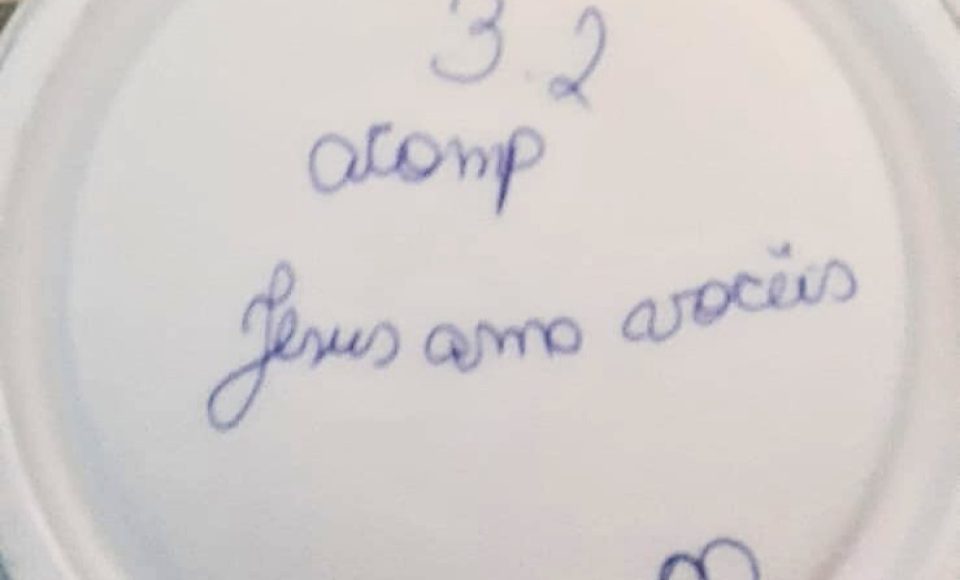 3 2
acomp
Jesus amo vocêis